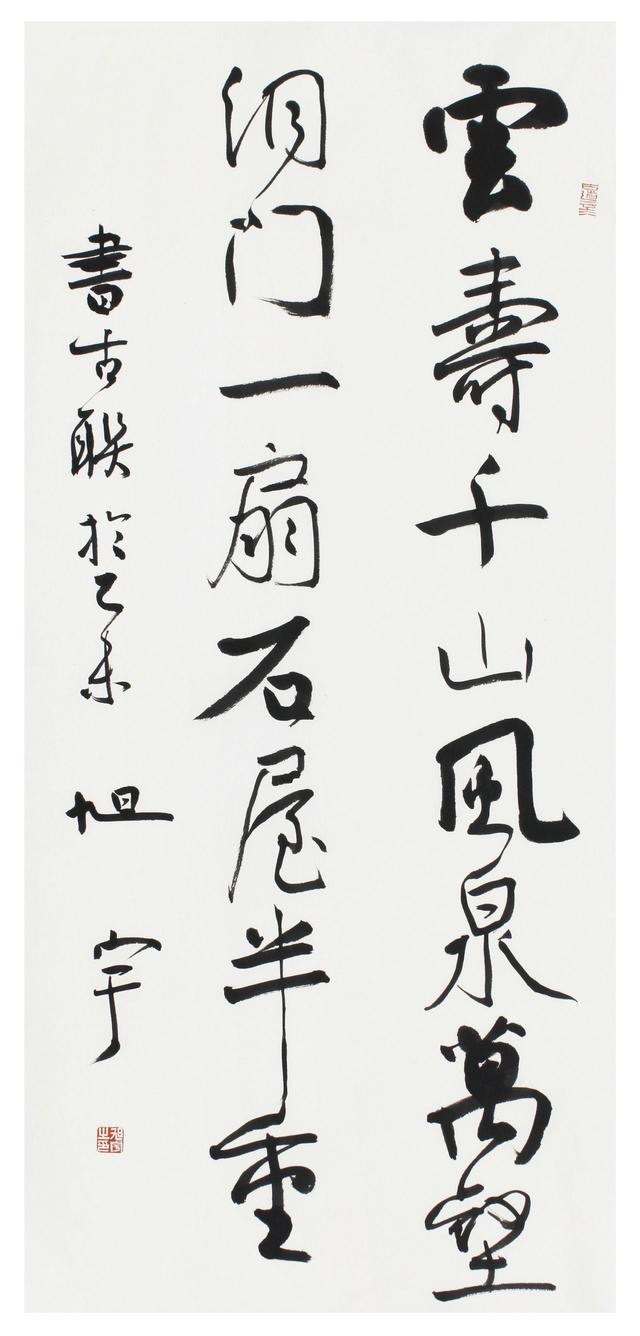 雲壽千山風泉萬壑
洞门一扇石屋半重
書古聯於乙未 旭宇